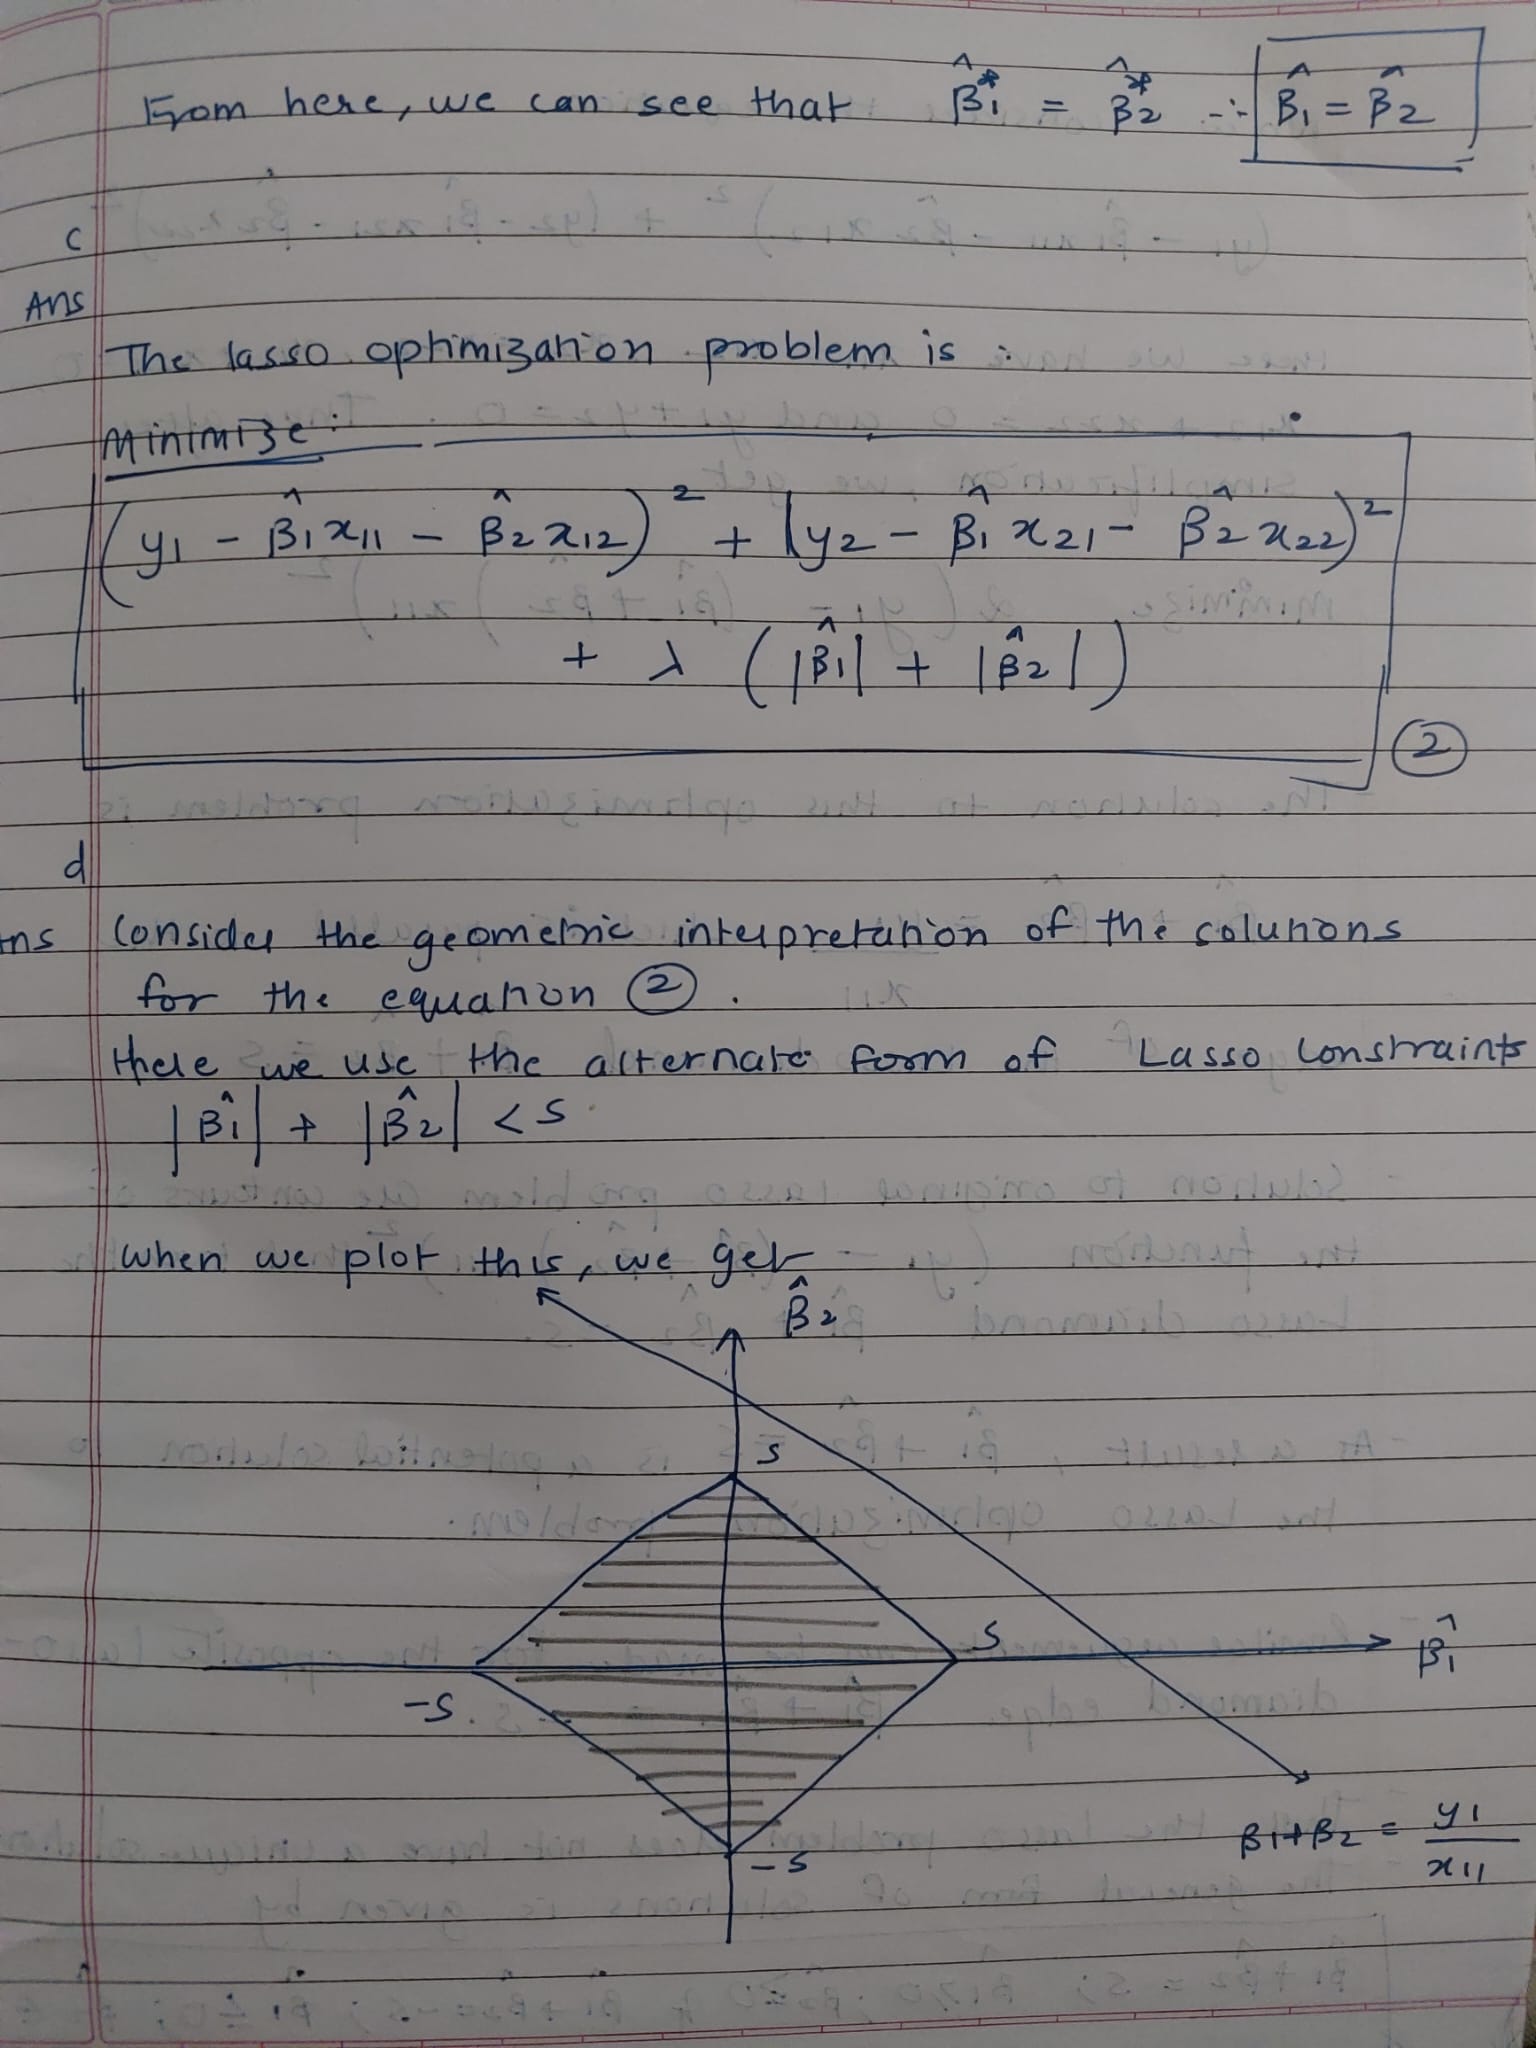 From here, we can see that β̂₁* = β̂₂* ∴ β̂₁ = β̂₂
c
Ans
The lasso optimization problem is :
Minimize :
(y₁ - β̂₁x₁₁ - β̂₂x₁₂)² + (y₂ - β̂₁x₂₁ - β̂₂x₂₂)²
+ λ (|β̂₁| + |β̂₂|)
②
d
Ans Consider the geometric interpretation of the solutions
for the equation ② .
Here we use the alternate form of Lasso constraints
|β̂₁| + |β̂₂| < s
When we plot this, we get
β̂₂
s
s
β̂₁
-s
-s
β₁+β₂ = y₁/x₁₁